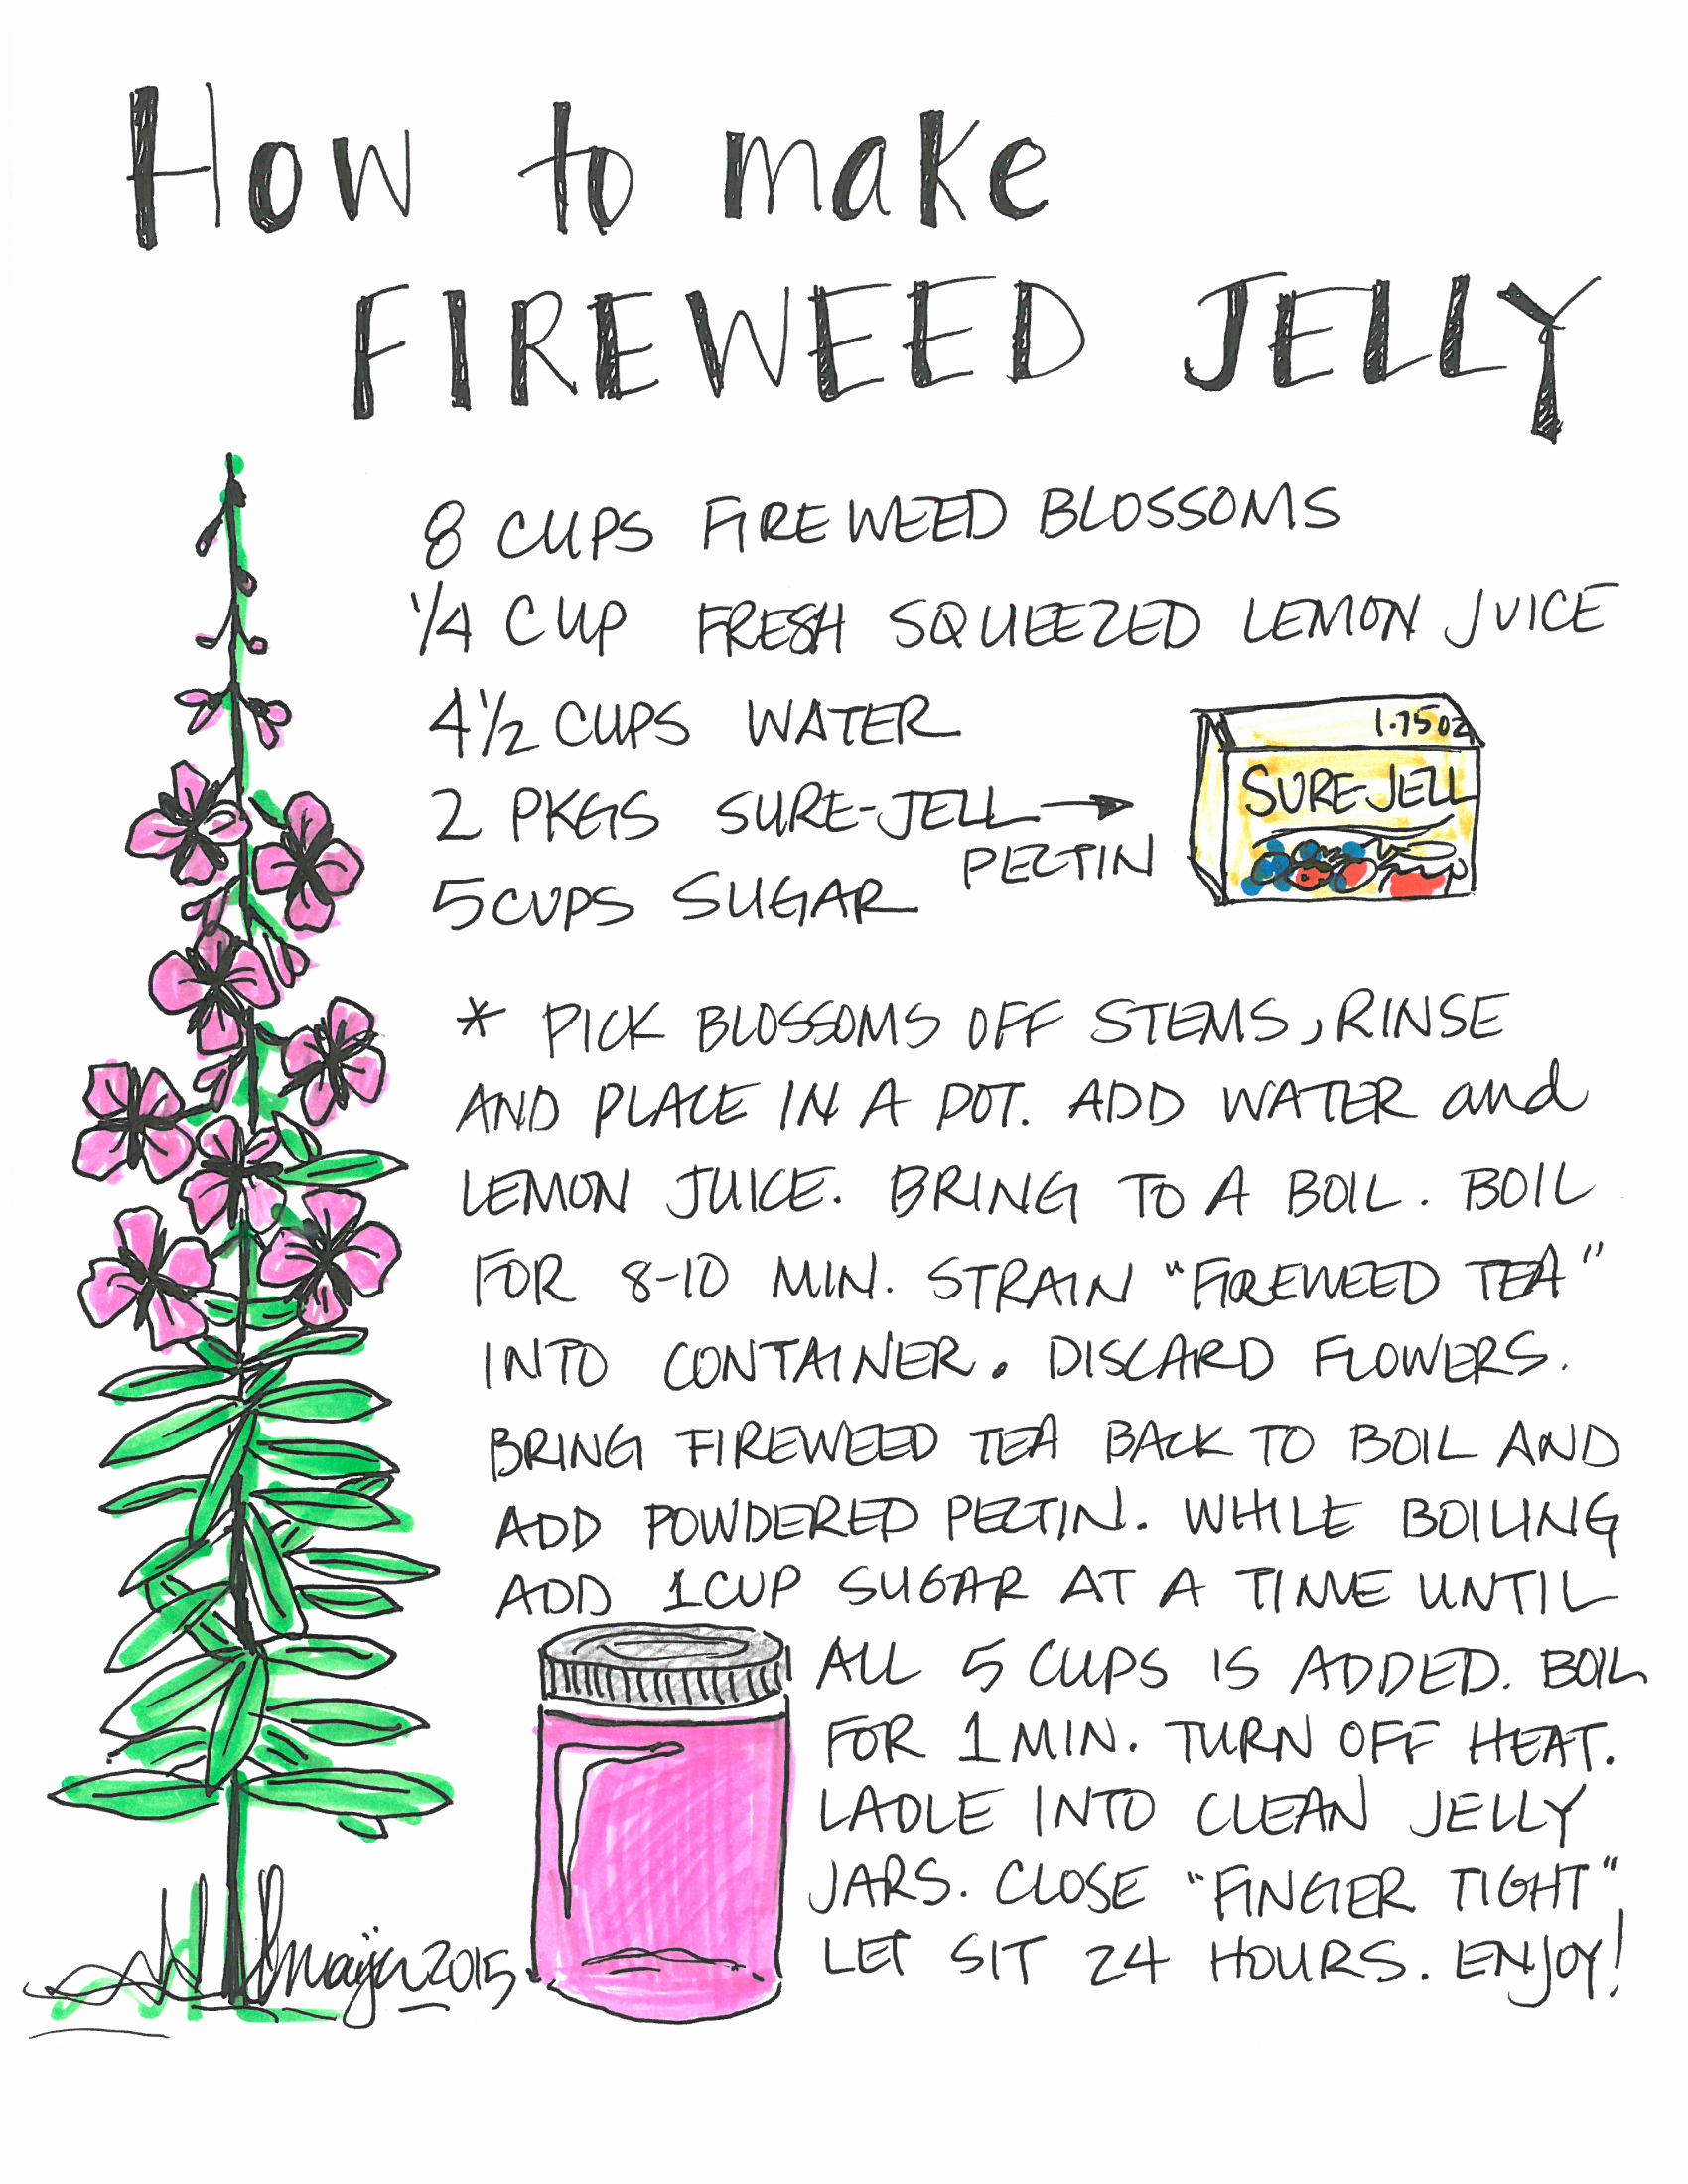 How to make
FIREWEED JELLY
8 CUPS FIREWEED BLOSSOMS
1/4 CUP FRESH SQUEEZED LEMON JUICE
4 1/2 CUPS WATER
2 PKGS SURE-JELL →
PECTIN
5 CUPS SUGAR
1.75 oz
SURE JELL
* PICK BLOSSOMS OFF STEMS, RINSE
AND PLACE IN A POT. ADD WATER and
LEMON JUICE. BRING TO A BOIL. BOIL
FOR 8-10 MIN. STRAIN "FIREWEED TEA"
INTO CONTAINER. DISCARD FLOWERS.
BRING FIREWEED TEA BACK TO BOIL AND
ADD POWDERED PECTIN. WHILE BOILING
ADD 1 CUP SUGAR AT A TIME UNTIL
ALL 5 CUPS IS ADDED. BOIL
FOR 1 MIN. TURN OFF HEAT.
LADLE INTO CLEAN JELLY
JARS. CLOSE "FINGER TIGHT"
LET SIT 24 HOURS. ENJOY!
2015